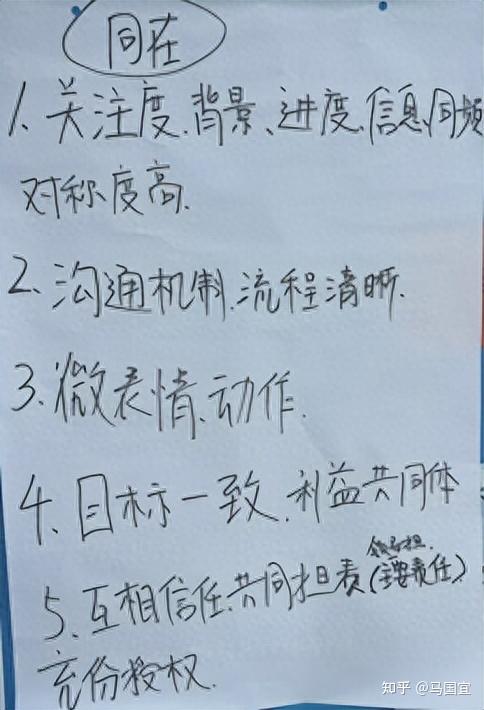 同在
1、关注度、背景、进度、信息、同频
对称度高.
2、沟通机制、流程清晰.
3、微表情、动作.
4、目标一致、利益共同体
5、互相信任、共同担责(主要责任)
充份授权.
知乎 @马国宜